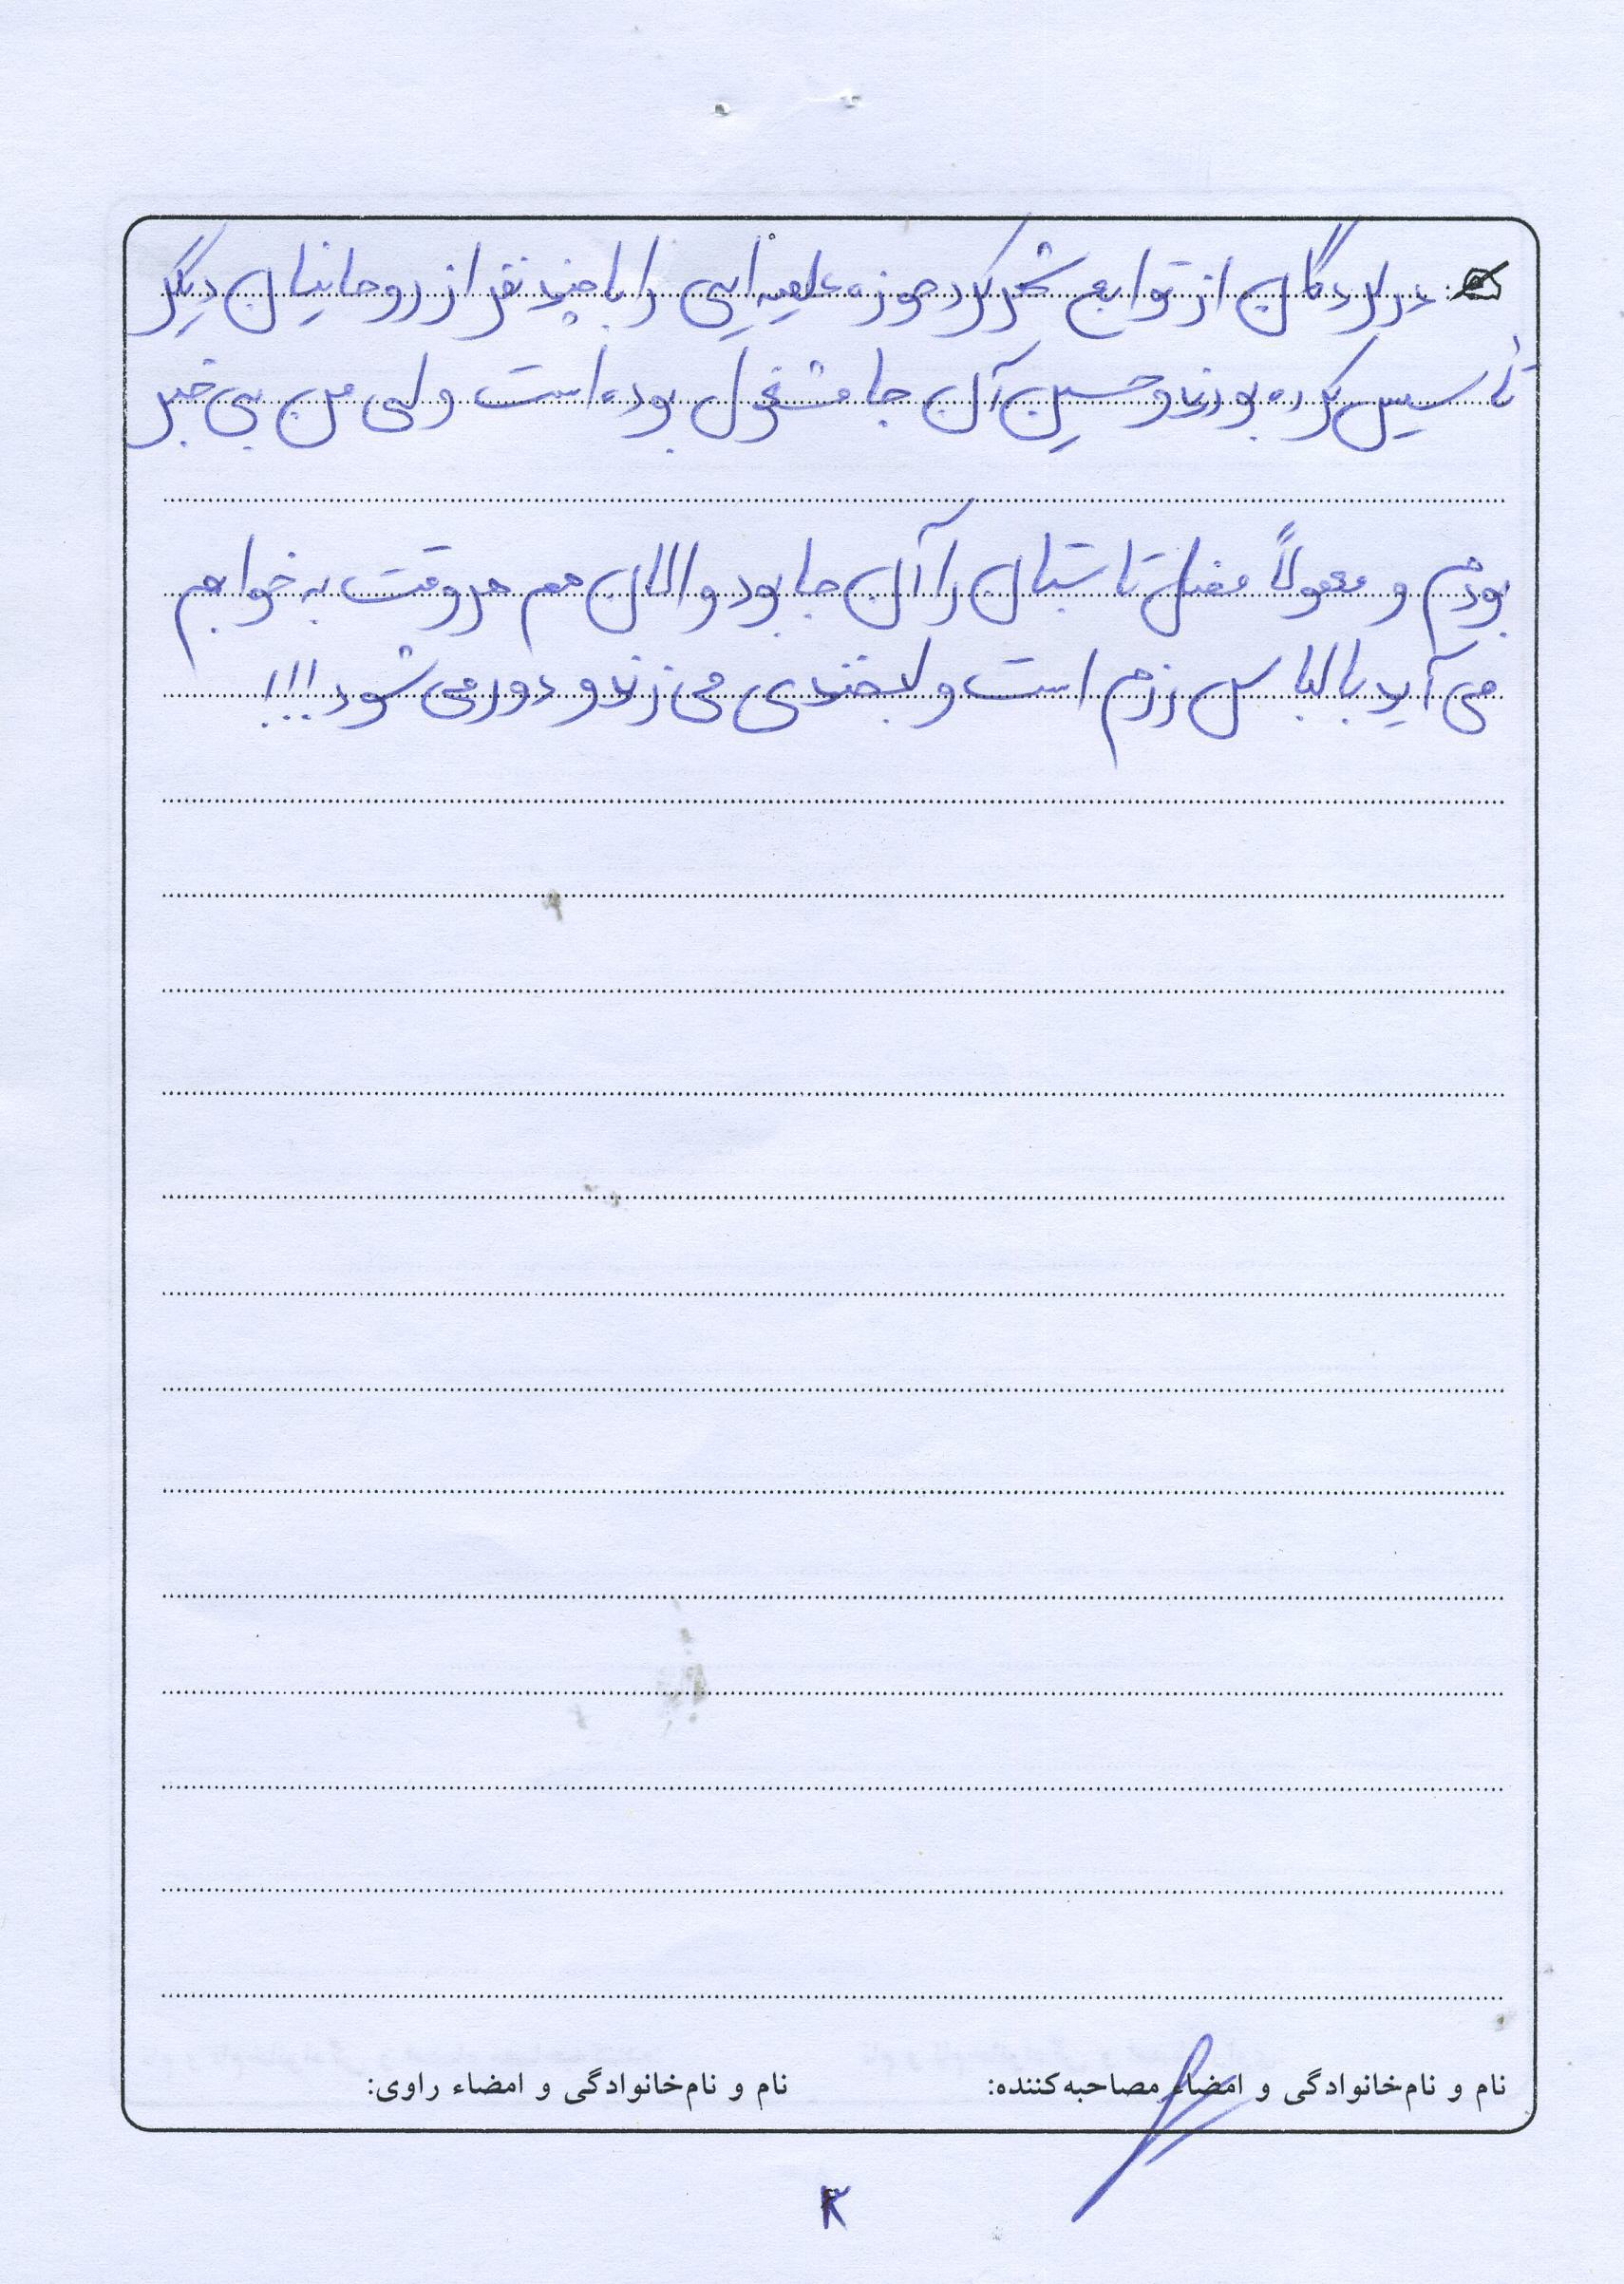 در لردگان از توابع شهرکرد حوزه علمیه ایی را با چند نفر از روحانیان دیگر
تأسیس کرده بودند و حسین آن جا مشغول بوده است ولی من بی خبر
بودم و معمولاً فصل تابستان را آن جا بود و الان هم هر وقت به خوابم
می آید با لباس رزم است و لبخندی می زند و دور می شود!!!
نام و نام‌خانوادگی و امضاء مصاحبه‌کننده:
نام و نام‌خانوادگی و امضاء راوی:
۳